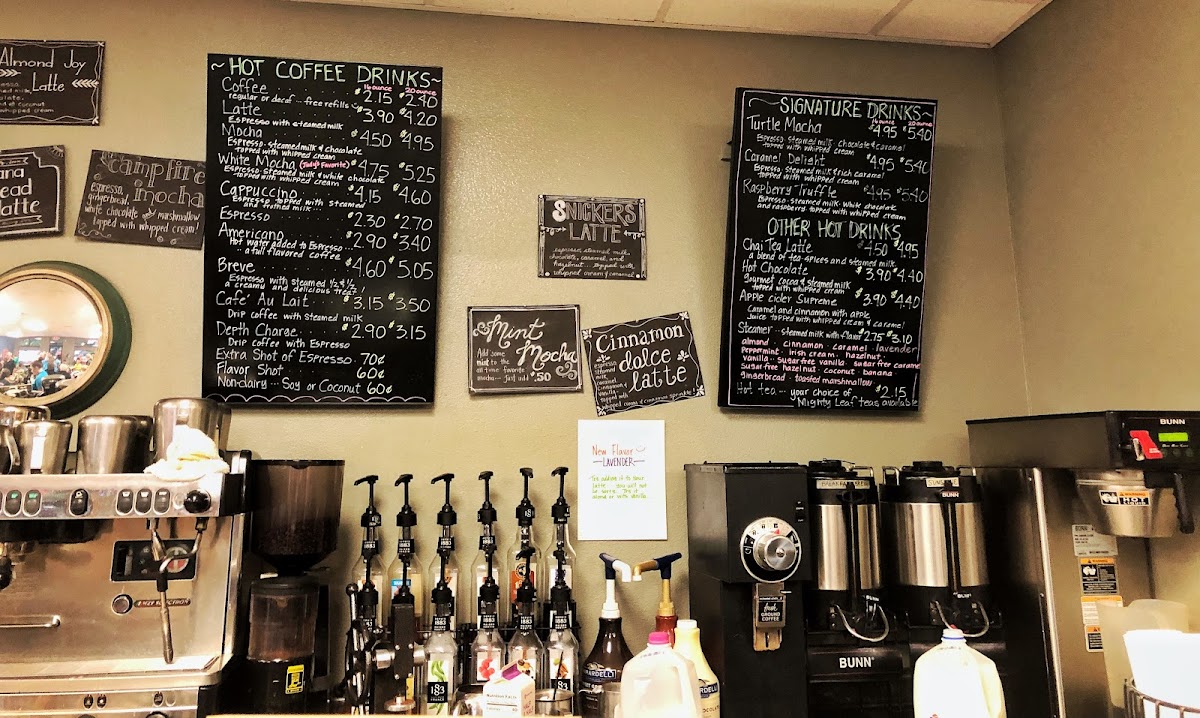 Almond Joy
Latte
whipped cream
Latte
Campfire
mocha
espresso,
gingerbread,
white chocolate marshmallow
topped with whipped cream!
~ HOT COFFEE DRINKS ~
16 ounce 20 ounce
Coffee $2.15 $2.40
regular or decaf ... free refills
Latte $3.90 $4.20
Espresso with steamed milk
Mocha $4.50 $4.95
Espresso, steamed milk & chocolate
topped with whipped cream
White Mocha (Judy's Favorite) $4.75 $5.25
Espresso, steamed milk & white chocolate
topped with whipped cream
Cappuccino $4.15 $4.60
Espresso topped with steamed
and frothed milk
Espresso $2.30 $2.70
Americano $2.90 $3.40
Hot water added to Espresso
a full flavored coffee
Breve $4.60 $5.05
Espresso with steamed 1/2 & 1/2
a creamy and delicious treat!
Café Au Lait $3.15 $3.50
Drip coffee with steamed milk
Depth Charge $2.90 $3.15
Drip coffee with Espresso
Extra Shot of Espresso 70¢
Flavor Shot 60¢
Non-dairy ... Soy or Coconut 60¢
SNICKERS
LATTE
espresso, steamed milk,
chocolate, caramel, and
hazelnut. topped with
whipped cream & caramel
Mint
Mocha
Add some
mint to the
all-time favorite
mocha... just add $.50
Cinnamon
dolce
latte
espresso
steamed
milk
caramel
cinnamon
vanilla
topped with
whipped cream & cinnamon sprinkles!
~ SIGNATURE DRINKS ~
16 ounce 20 ounce
Turtle Mocha $4.95 $5.40
Espresso, steamed milk, chocolate & caramel
topped with whipped cream
Caramel Delight $4.95 $5.40
Espresso, steamed milk & rich caramel
topped with whipped cream
Raspberry Truffle $4.95 $5.40
Espresso, steamed milk, white chocolate
and raspberry topped with whipped cream
OTHER HOT DRINKS
Chai Tea Latte $4.50 $4.95
a blend of tea, spices and steamed milk
Hot Chocolate $3.90 $4.40
Gourmet cocoa & steamed milk
topped with whipped cream
Apple cider Supreme $3.90 $4.40
Caramel and cinnamon with apple
juice topped with whipped cream & caramel
Steamer - steamed milk with flavor $2.75 $3.10
almond · cinnamon · caramel · lavender
Peppermint · irish cream · hazelnut ·
vanilla · sugar free vanilla · sugar free caramel
sugar free hazelnut · coconut · banana
gingerbread · toasted marshmallow
Hot tea ... your choice of $2.15
Mighty Leaf teas available
New Flavor
— LAVENDER —
Try adding it to your
latte ... you will not
be sorry. Try it
alone or with vanilla.
1883
1883
fresh
GROUND
COFFEE
BREAKFAST BLEND
BUNN
BUNN
BUNN
HOT